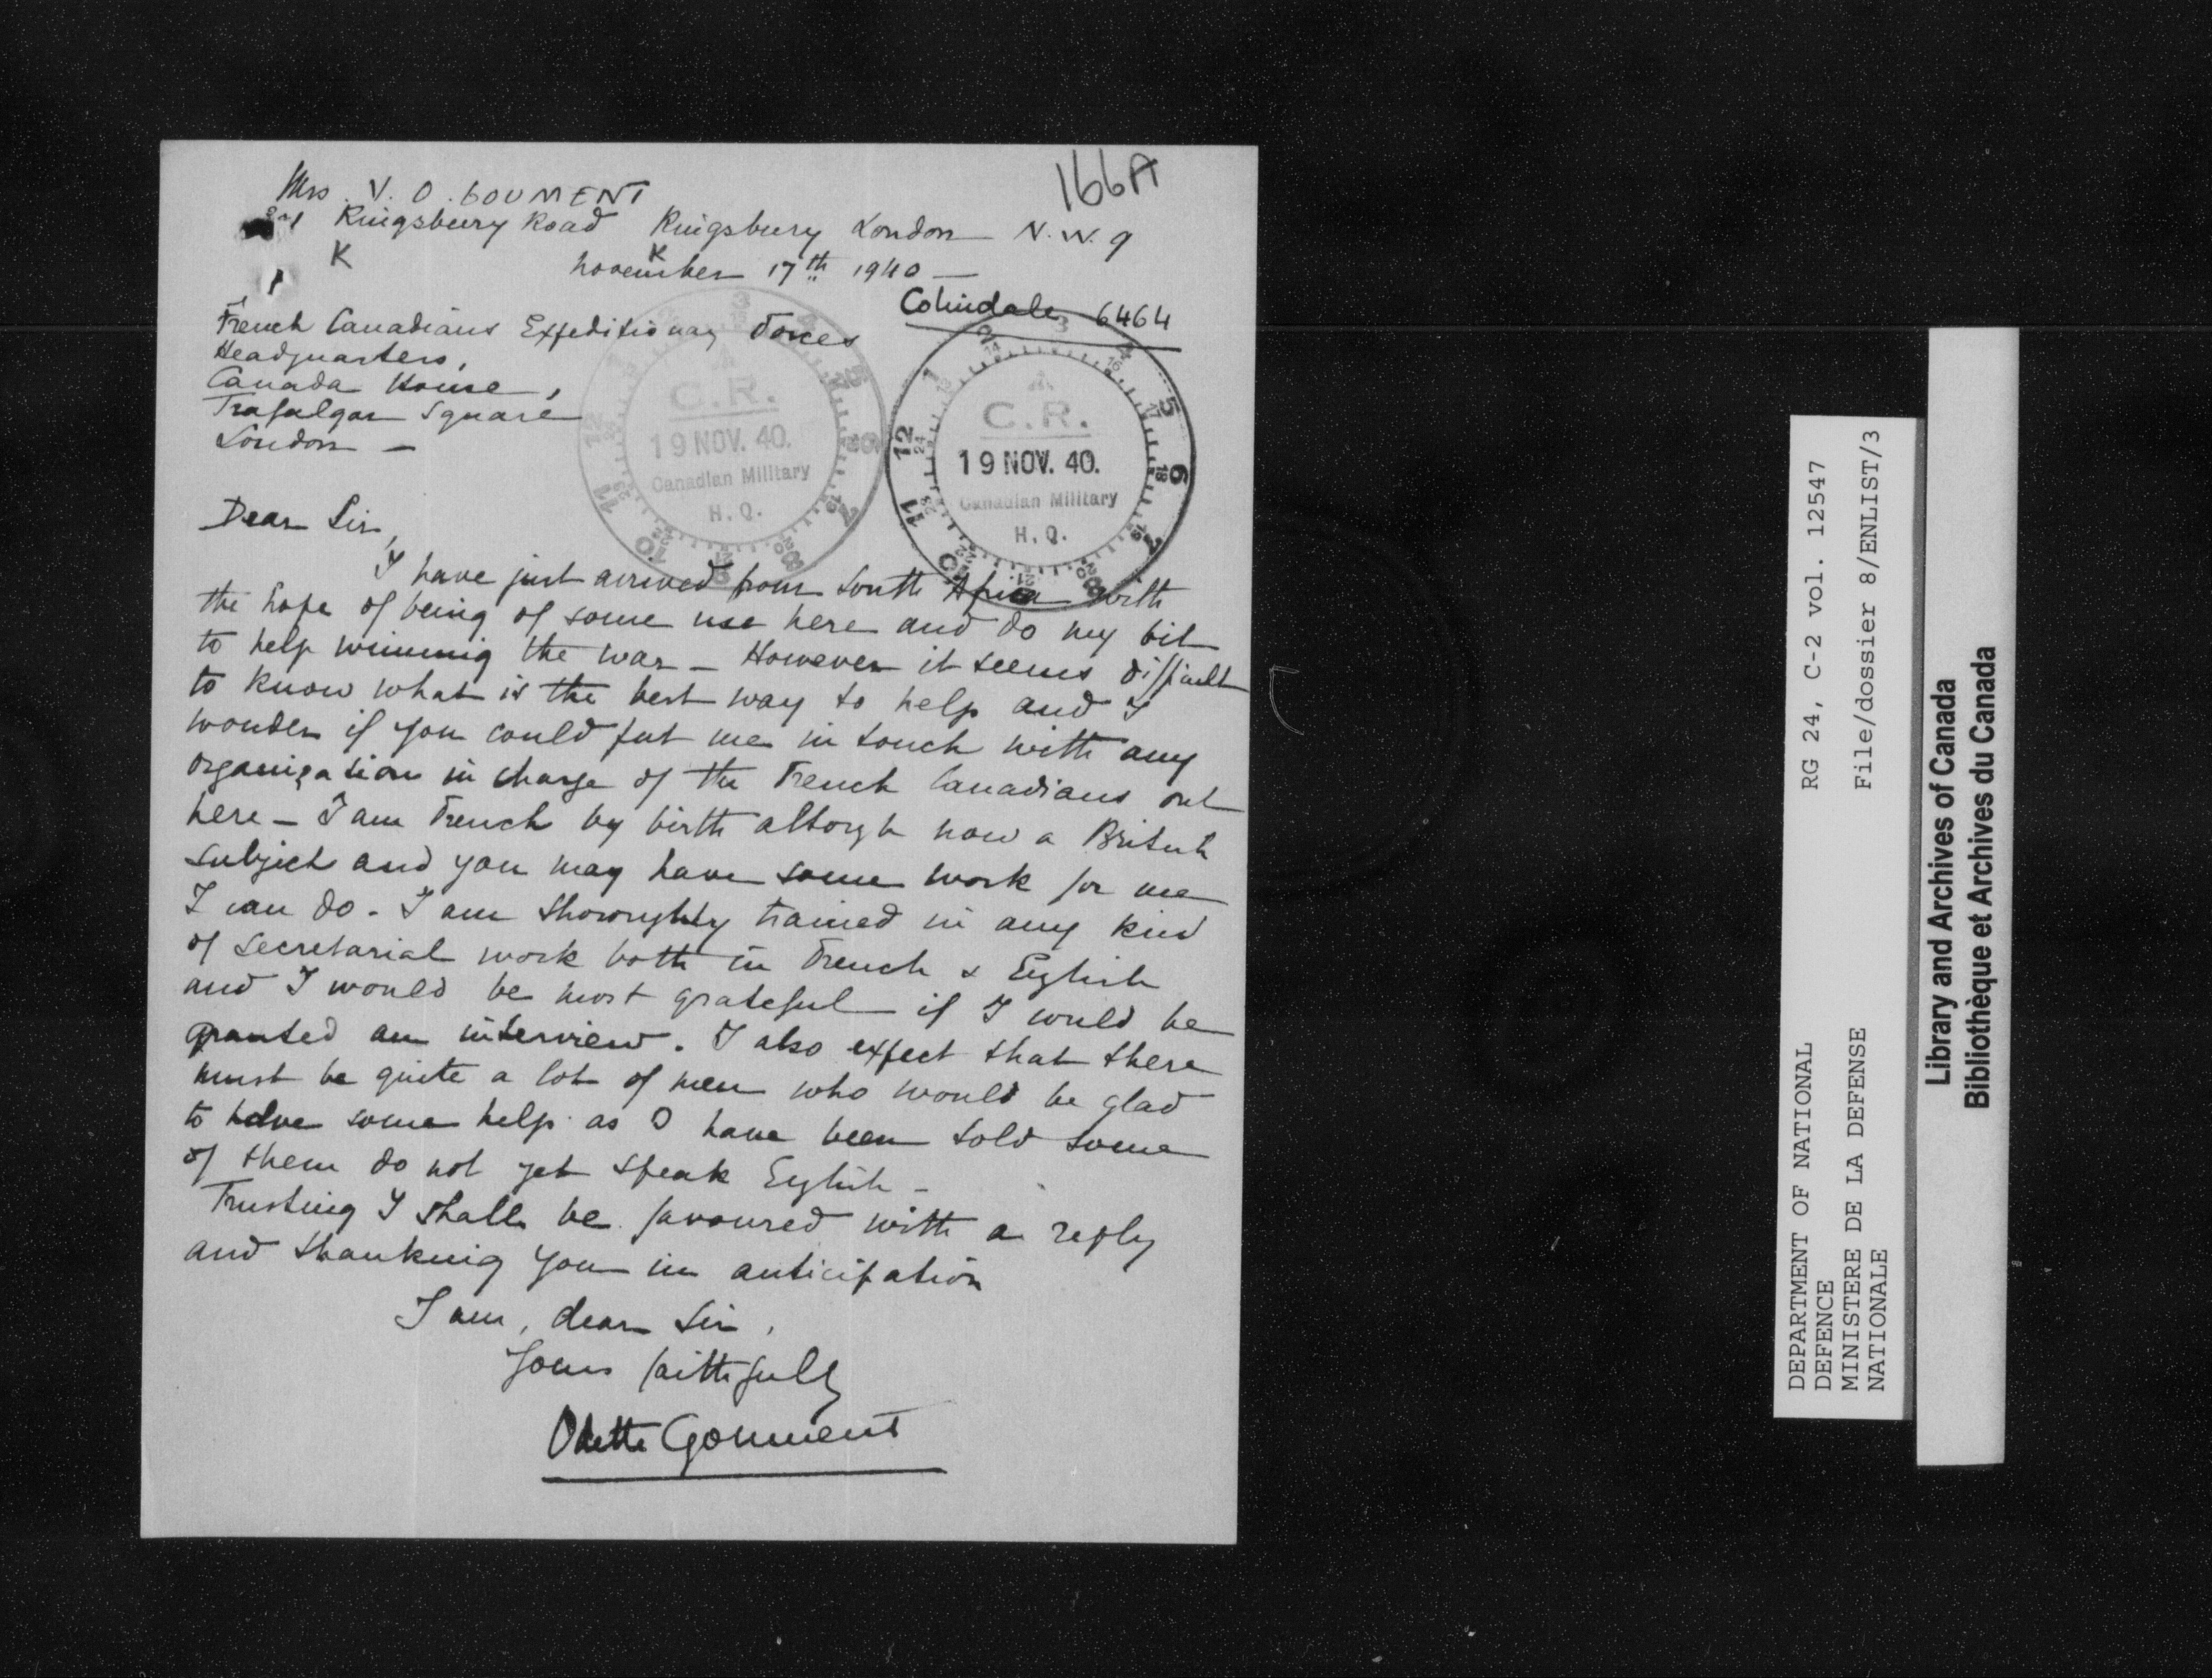 166A
Mrs. V. O. GOUMENT
Kingsbury Road Kingsbury London N.W.9
K K
November 17th 1940 —
Colindale 6464
French Canadians Expeditionary Forces
Headquarters,
Canada House,
Trafalgar Square
London —
C.R.
19 NOV. 40.
Canadian Military
H.Q.
C.R.
19 NOV. 40.
Canadian Military
H.Q.
Dear Sir,
I have just arrived from South Africa with
the hope of being of some use here and do my bit
to help winning the war — However it seems difficult
to know what is the best way to help and I
wonder if you could put me in touch with any
organization in charge of the French Canadians out
here — I am French by birth altough now a British
subject and you may have some work for me
I can do. I am thoroughly trained in any kind
of secretarial work both in French & English
and I would be most grateful if I could be
granted an interview. I also expect that there
must be quite a lot of men who would be glad
to have some help as I have been told some
of them do not yet speak English —
Trusting I shall be favoured with a reply
and thanking you in anticipation
I am, dear Sir,
Yours faithfully
Odette Goument
DEPARTMENT OF NATIONAL
DEFENCE
MINISTERE DE LA DEFENSE
NATIONALE
RG 24, C-2 vol. 12547
File/dossier 8/ENLIST/3
Library and Archives of Canada
Bibliothèque et Archives du Canada